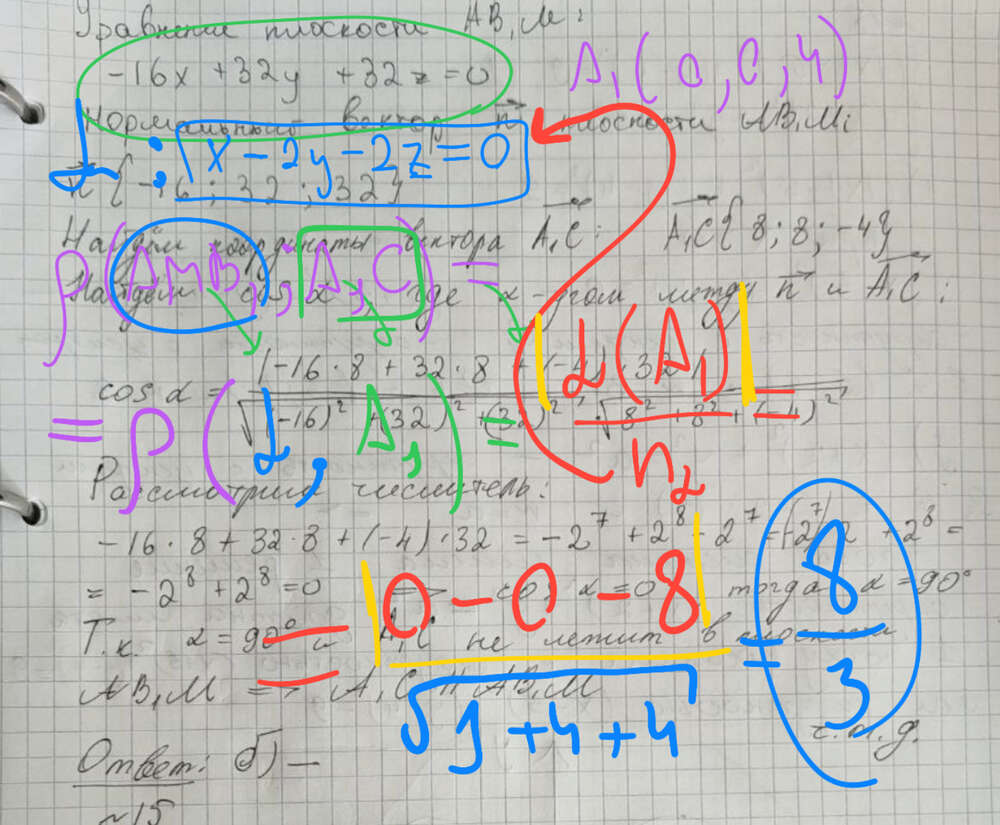 Уравнение плоскости AB₁M:
-16x + 32y + 32z = 0
A₁(0,0,4)
Нормальный вектор n плоскости AB₁M:
α: x - 2y - 2z = 0
n{-16; 32; 32}
Найдём координаты вектора A₁C: A₁C{8; 8; -4}
ρ(AMB₁; A₁C) =
Найдём cos α, где α - угол между n и A₁C:
cos α = |-16·8 + 32·8 + (-4)·32| / √(-16)² + (32)² + (32)² · √8² + 8² + (-4)²
= ρ(α, A₁) = |α(A₁)| / n₂ =
Рассмотрим числитель:
-16·8 + 32·8 + (-4)·32 = -2⁷ + 2⁸ - 2⁷ = (-2⁷)·2 + 2⁸ =
= -2⁸ + 2⁸ = 0 => cos α = 0 тогда α = 90°
= |0 - 0 - 8| / √1 + 4 + 4 = 8/3
Т.к. α = 90° и A₁C не лежит в плоскости
AB₁M => A₁C || AB₁M
ч.т.д.
Ответ: б) —
~15